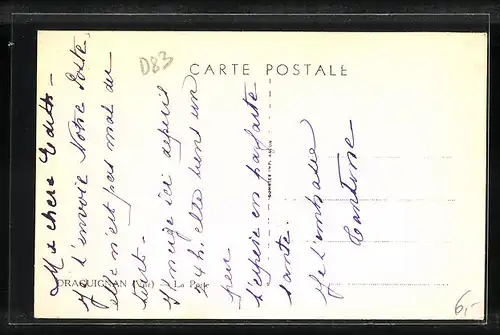 D83
CARTE POSTALE
Ma chere Edith -
Je t'envoie Notre Poste
elle n'est pas mal du
tout -
Il neige ici depuis
24 h. elle tient un
peu
J'espère en parfaite
santé.
Je t'embrasse
DRAGUIGNAN (Var) - La Poste
6,-